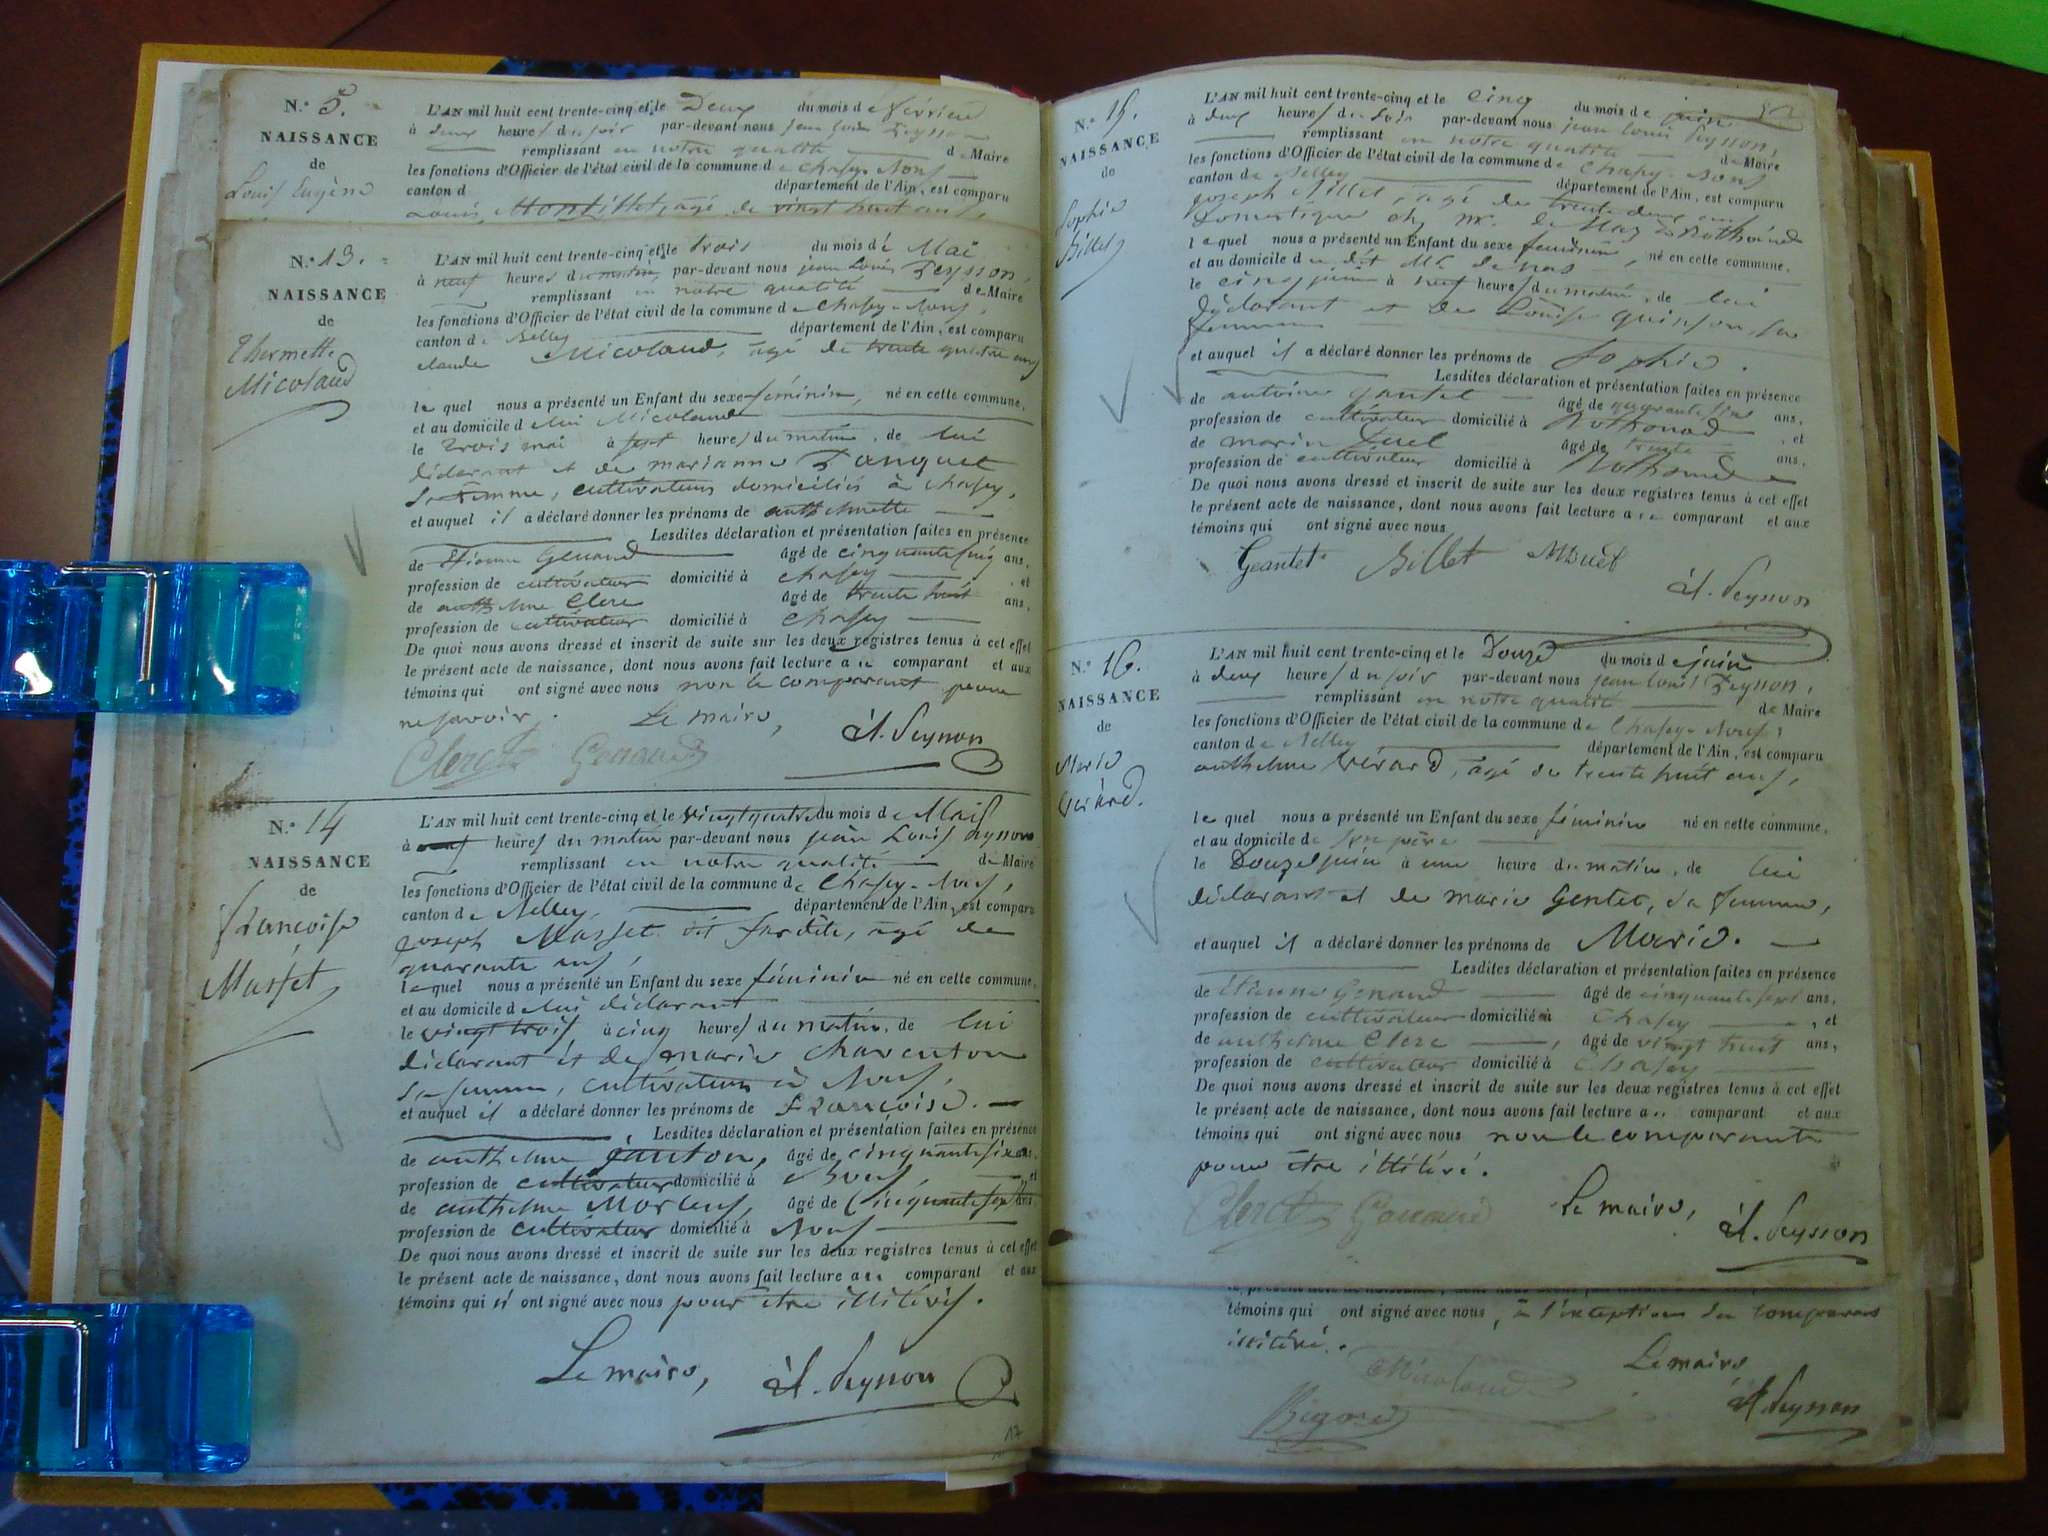 N.° 5.
NAISSANCE
de
Louis Eugène
L'AN mil huit cent trente-cinq et le Deux du mois de février
à deux heures du soir par-devant nous jean louis Peysson
remplissant en notre qualité de Maire
les fonctions d'Officier de l'état civil de la commune de Chasey-
canton d département de l'Ain, est comparu
Louis Montillet, agé de vingt huit ans,
N.° 13.
NAISSANCE
de
Micoland
L'AN mil huit cent trente-cinq et le trois du mois de Mai
à neuf heures du matin, par-devant nous jean Louis Peysson,
remplissant en notre qualité de Maire
les fonctions d'Officier de l'état civil de la commune de Chasey-
canton de Belley département de l'Ain, est comparu
claude Micoland, agé de trente quatre ans
lequel nous a présenté un Enfant du sexe féminin, né en cette commune,
et au domicile d lui Micoland
le trois mai à sept heures du matin, de lui
déclarant et de marianne
sa femme, cultivateurs domiciliés à chasey,
et auquel il a déclaré donner les prénoms de
Lesdites déclaration et présentation faites en présence
de Etienne Genand âgé de ans,
profession de cultivateur domicilié à chasey, et
de anthelme Clerc âgé de trente huit ans,
profession de cultivateur domicilié à Chasey
De quoi nous avons dressé et inscrit de suite sur les deux registres tenus à cet effet
le présent acte de naissance, dont nous avons fait lecture au comparant et aux
témoins qui ont signé avec nous non le comparant pour
ne savoir. Le maire, Peysson
Clerc Genand
N.° 14
NAISSANCE
de
françoise
Masset
L'AN mil huit cent trente-cinq et le vingt quatre du mois de Mai
à neuf heures du matin par-devant nous jean Louis Peysson
remplissant en notre qualité de Maire
les fonctions d'Officier de l'état civil de la commune de Chasey-
canton de Belley, département de l'Ain, est comparu
joseph Masset dit, agé de
quarante ans,
lequel nous a présenté un Enfant du sexe féminin né en cette commune,
et au domicile d lui déclarant
le vingt trois à cinq heures du matin, de lui
déclarant et de marie charenton
sa femme, cultivateurs à
et auquel il a déclaré donner les prénoms de Françoise.
Lesdites déclaration et présentation faites en présence
de anthelme âgé de ans,
profession de cultivateur domicilié à et
de anthelme âgé de ans
profession de cultivateur domicilié à
De quoi nous avons dressé et inscrit de suite sur les deux registres tenus à cet effet
le présent acte de naissance, dont nous avons fait lecture au comparant et aux
témoins qui n' ont signé avec nous pour être illitérés.
Le maire, Peysson
17
N.° 15.
NAISSANCE
de
Sophie
Billet
L'AN mil huit cent trente-cinq et le cinq du mois de juin
à deux heures du soir par-devant nous jean louis Peysson,
remplissant en notre qualité de Maire
les fonctions d'Officier de l'état civil de la commune de Chasey-
canton de Belley département de l'Ain, est comparu
joseph Billet, agé de trente deux ans
Domestique chez mr.
lequel nous a présenté un Enfant du sexe féminin, né en cette commune,
et au domicile du dit Mr.
le cinq juin à neuf heures du matin, de lui
Déclarant et de Louise quinson, sa
femme
et auquel il a déclaré donner les prénoms de Sophie.
Lesdites déclaration et présentation faites en présence
de antoine âgé de ans,
profession de cultivateur domicilié à Rothonod, et
de marin âgé de trente ans,
profession de cultivateur domicilié à Rothonod
De quoi nous avons dressé et inscrit de suite sur les deux registres tenus à cet effet
le présent acte de naissance, dont nous avons fait lecture au comparant et aux
témoins qui ont signé avec nous
Geantet Billet
Peysson
N.° 16.
NAISSANCE
de
Marie
L'AN mil huit cent trente-cinq et le Douze du mois de juin
à deux heures du soir par-devant nous jean louis Peysson,
remplissant en notre qualité de Maire
les fonctions d'Officier de l'état civil de la commune de Chasey-
canton de Belley département de l'Ain, est comparu
anthelme agé de trente huit ans,
lequel nous a présenté un Enfant du sexe féminin né en cette commune,
et au domicile de son père
le Douze juin à une heure du matin, de lui
déclarant et de marie Gentet, sa femme,
et auquel il a déclaré donner les prénoms de Marie.
Lesdites déclaration et présentation faites en présence
de Etienne Genand âgé de cinquante sept ans,
profession de cultivateur domicilié à Chasey, et
de anthelme Clerc, âgé de vingt huit ans,
profession de cultivateur domicilié à Chasey
De quoi nous avons dressé et inscrit de suite sur les deux registres tenus à cet effet
le présent acte de naissance, dont nous avons fait lecture au comparant et aux
témoins qui ont signé avec nous non le comparant
pour être illitéré.
Clerc Genand Le maire, Peysson
témoins qui ont signé avec nous, à l'exception du comparant
illitéré.
Le maire
Micoland
Peysson